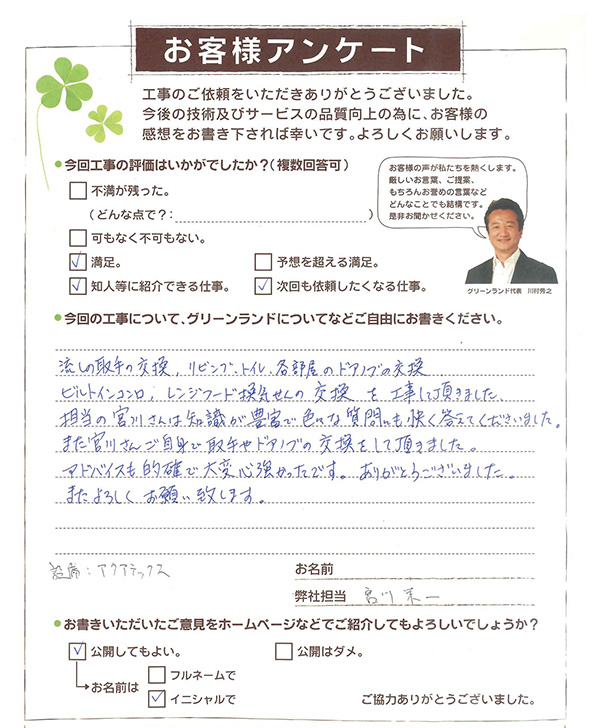 お客様アンケート
工事のご依頼をいただきありがとうございました。
今後の技術及びサービスの品質向上の為に、お客様の
感想をお書き下されば幸いです。よろしくお願いします。
今回工事の評価はいかがでしたか?(複数回答可)
不満が残った。
(どんな点で?: )
可もなく不可もない。
満足。 予想を超える満足。
知人等に紹介できる仕事。 次回も依頼したくなる仕事。
お客様の声が私たちを熱くします。
厳しいお言葉、ご提案、
もちろんお誉めの言葉など
どんなことでも結構です。
是非お聞かせください。
グリーンランド代表 川村秀之
今回の工事について、グリーンランドについてなどご自由にお書きください。
流しの取手の交換、リビング、トイレ、各部屋のドアノブの交換
ビルトインコンロ、レンジフード換気せんの交換を工事して頂きました。
担当の宮川さんは知識が豊富で色々な質問にも快く答えてくださいました。
また宮川さんご自身で取手やドアノブの交換をして頂きました。
アドバイスも的確で大変心強かったです。ありがとうございました。
またよろしくお願い致します。
設備:アクアテックス
お名前
弊社担当 宮川 栄一
お書きいただいたご意見をホームページなどでご紹介してもよろしいでしょうか?
公開してもよい。 公開はダメ。
お名前は フルネームで
イニシャルで
ご協力ありがとうございました。